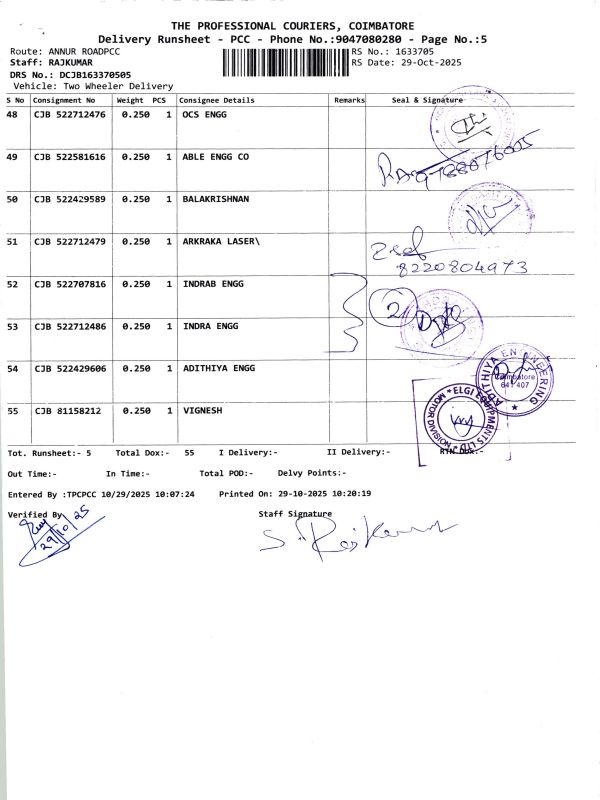 THE PROFESSIONAL COURIERS, COIMBATORE
Delivery Runsheet - PCC - Phone No.:9047080280 - Page No.:5
Route: ANNUR ROADPCC RS No.: 1633705
Staff: RAJKUMAR RS Date: 29-Oct-2025
DRS No.: DCJB163370505
Vehicle: Two Wheeler Delivery
S No Consignment No Weight PCS Consignee Details Remarks Seal & Signature
48 CJB 522712476 0.250 1 OCS ENGG
49 CJB 522581616 0.250 1 ABLE ENGG CO
50 CJB 522429589 0.250 1 BALAKRISHNAN
51 CJB 522712479 0.250 1 ARKRAKA LASER\
8220804973
52 CJB 522707816 0.250 1 INDRAB ENGG
2
53 CJB 522712486 0.250 1 INDRA ENGG
54 CJB 522429606 0.250 1 ADITHIYA ENGG
ADITHIYA ENGINEERING
Coimbatore
641 407
55 CJB 81158212 0.250 1 VIGNESH
ELGI EQUIPMENTS LTD
MOTOR DIVISION
Tot. Runsheet:- 5 Total Dox:- 55 I Delivery:- II Delivery:- RTN Dox:-
Out Time:- In Time:- Total POD:- Delvy Points:-
Entered By :TPCPCC 10/29/2025 10:07:24 Printed On: 29-10-2025 10:20:19
Verified By Staff Signature
29/10/25 S. Rajkumar